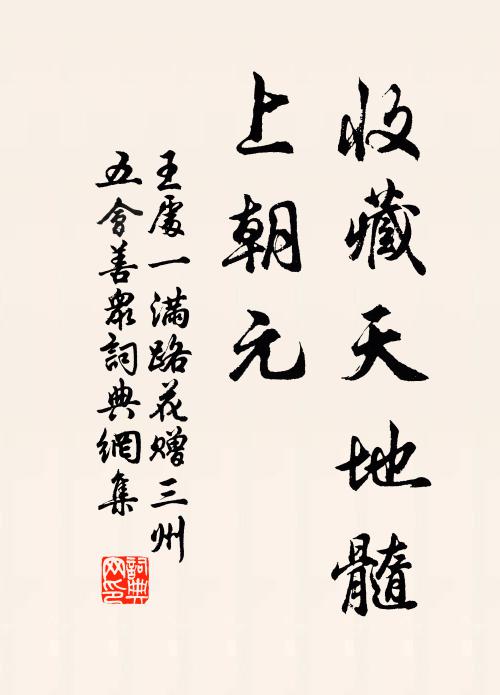 收藏天地髓
上朝元
王處一滿路花贈三州
五會善眾詞典網集
詞典网印